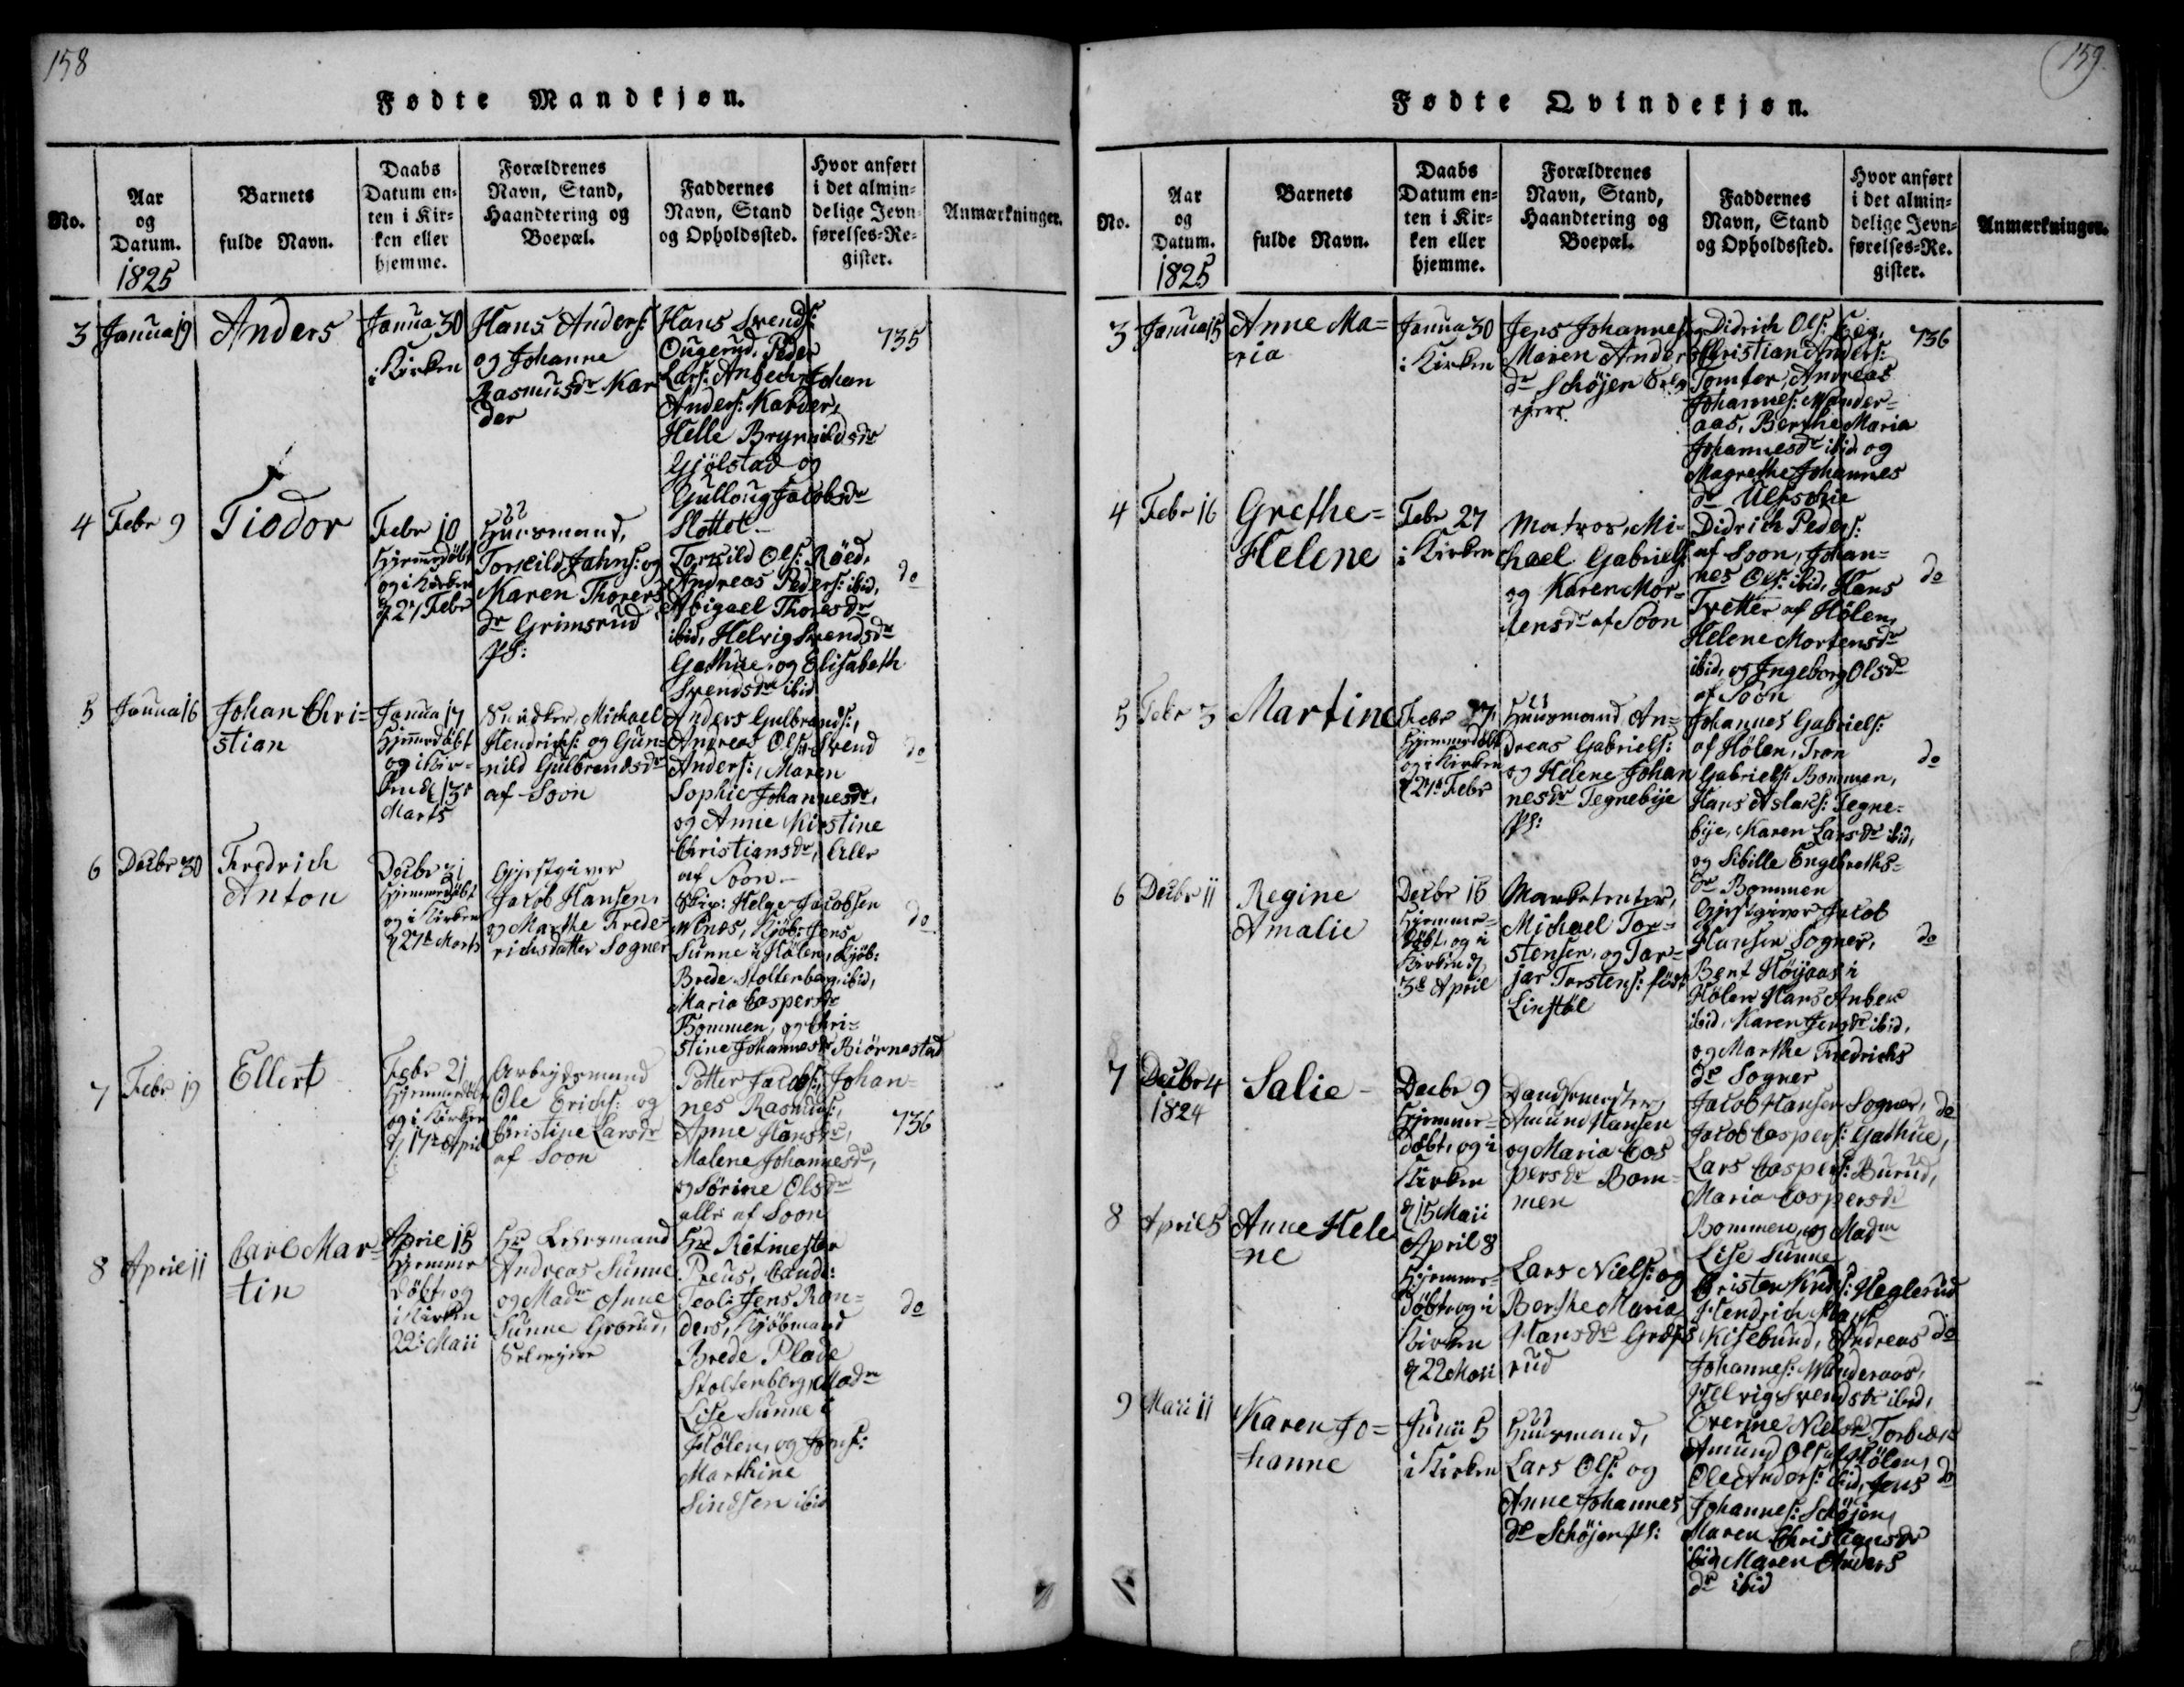 158
Fødte Mandkjøn.
No.
Aar
og
Datum.
1825
Barnets
fulde Navn.
Daabs
Datum en-
ten i Kir-
ken eller
hjemme.
Forældrenes
Navn, Stand,
Haandtering og
Boepæl.
Faddernes
Navn, Stand
og Opholdssted.
Hvor anført
i det almin-
delige Jevn-
førelses-Re-
gister.
Anmærkninger.
3
Janua 19
Anders
Janua 30
i Kirken
Hans Anders:
og Johanne
Rasmusdr Kar
der
Hans Svends:
Ougerud, Peder
Lars: Anbech, Johan
Anders: Karder,
Helle Brynildsdr
Gjölstad og
Gulloug Jacobsdr
Slottet
735
4
Febr 9
Tiodor
Febr 10
Hjemmedöbt
og i Kirken
d 27 Febr
Huusmand,
Torkild Jahns: og
Karen Thorers
dr Grimsrud
Pl:
Torkild Ols: Röed,
Andreas Peders: ibid,
Abigael Thoresdr
ibid, Helvig Svendsdr
Gathue, og Elisabeth
Svendsdr ibid
do
5
Janua 16
Johan Chri-
stian
Janua 17
Hjemmedöbt
og i Kir-
ken d 13de
Marts
Snedker Michael
Hendrichs: og Gun-
nild Gulbrandsdr
af Soon
Anders Gulbrands:,
Andreas Ols:, Svend
Anders:, Maren
Sophie Johannesdr,
og Anne Kirstine
Christiansdr, Alle
af Soon
do
6
Decbr 30
Fredrich
Anton
Decbr 31
Hjemmedöbt
og i Kirken
d 27de Marts
Gjestgiver
Jacob Hansen,
og Marthe Frede-
richsdatter Sogner
Skip: Helge Jacobsen
Wenæs, Kjöb: Jens
Sunne i Hölen, Kjöb:
Brede Stoltenberg, ibid,
Maria Caspersdr
Bommen, og Chri-
stine Johannesdr Biörnestad
do
7
Febr 19
Ellert
Febr 21
Hjemmedöbt
og i Kirken
d 17de April
Arbeidsmand
Ole Erichs: og
Christine Larsdr
af Soon
Petter Jacobs:, Johan-
nes Rasmus:,
Anne Hansdr,
Malene Johannesdr,
og Sörine Olsdr
alle af Soon
736
8
April 11
Carl Mar-
tin
April 15
Hjemme
döbt, og
i Kirken
22de Maii
Hr Lehnsmand
Andreas Sunne
og Madm Anne
Sunne Grorud,
Selveyere
Hr Ritmester
Preus, Cand:
Teol: Jens Ran-
ders, Kjöbmand
Brede Plade
Stoltenberg, Madm
Lise Sunne i
Hölen, og Jomf:
Marthine
Sindsen ibid
do
159
Fødte Qvindekjøn.
No.
Aar
og
Datum.
1825
Barnets
fulde Navn.
Daabs
Datum en-
ten i Kir-
ken eller
hjemme.
Forældrenes
Navn, Stand,
Haandtering og
Boepæl.
Faddernes
Navn, Stand
og Opholdssted.
Hvor anført
i det almin-
delige Jevn-
førelses-Re-
gister.
Anmærkninger.
3
Janua 15
Anne Ma-
ria
Janua 30
i Kirken
Jens Johannes: og
Maren Anders
dr Schöjen Selv
ejere
Didrich Ols: Høg,
Christian Anders:
Tomter, Andreas
Johannes: Mander-
aas, Berthe Maria
Johannesdr ibid og
Magrethe Johannes
dr Ulfschie
736
4
Febr 16
Grethe-
Helene
Febr 27
i Kirken
Matros, Mi-
chael Gabriels:
og Karen Mor-
tensdr af Soon
Didrich Peders:
af Soon, Johan-
nes Ols: ibid, Hans
Tretter af Hölen,
Helene Mortensdr
ibid, og Ingeborg Olsdr
af Soon
do
5
Febr 3
Martine
Febr 27
Hjemmedöbt
og i Kirken
d 27de Febr
Huusmand An-
dreas Gabriels:
og Helene Johan
nesdr Tegnebÿe
Pl:
Johannes Gabriels:
af Hölen, Tron
Gabriels: Bommen,
Hans Aslaks: Tegne-
bÿe, Karen Larsdr ibid,
og Sibille Engebreths-
dr Bommen
do
6
Decbr 11
Regine
Amalie
Decbr 16
Hjemme-
döbt, og i
Kirken d
3de April
Marketenter,
Michael Tor-
stensen, og Tar-
jar Torstens: födt
Linstöl
Gjestgiver Jacob
Hansen Sogner,
Bent Höÿaas i
Hölen Hans Anbech
ibid, Karen Jensdr ibid,
og Marthe Fredrichs
dr Sogner
do
7
Decbr 4
1824
Salie
Decbr 9
Hjemme-
döbt, og i
Kirken
d 15 Maii
Dandsemester
Amund Hansen
og Maria Cas
persdr Bom-
men
Jacob Hansen Sogner,
Jacob Caspers: Gathue,
Lars Caspers: Burud,
Maria Caspersdr
Bommen, og Madm
Lise Sunne
do
8
April 5
Anne Hele
ne
April 8
Hjemme-
döbt, og i
Kirken
d 22 Maii
Lars Niels: og
Berthe Maria
Hansdr Græs
rud
Christen Knds: Heglerud
Hendrich
Kisebund, Andreas
Johannes: Manderaas,
Helvig Svendsdr ibid,
Everine Nielsdr Torbæk
do
9
Maii 11
Karen Jo-
hanne
Junii 5
i Kirken
Huusmand,
Lars Ols: og
Anne Johannes
dr Schöjen pl:
Amund Ols: af Hölen,
Ole Anders: ibid, Jens
Johannes: Schöjen,
Maren Christiansdr
ibid, Maren Anders
dr ibid
do